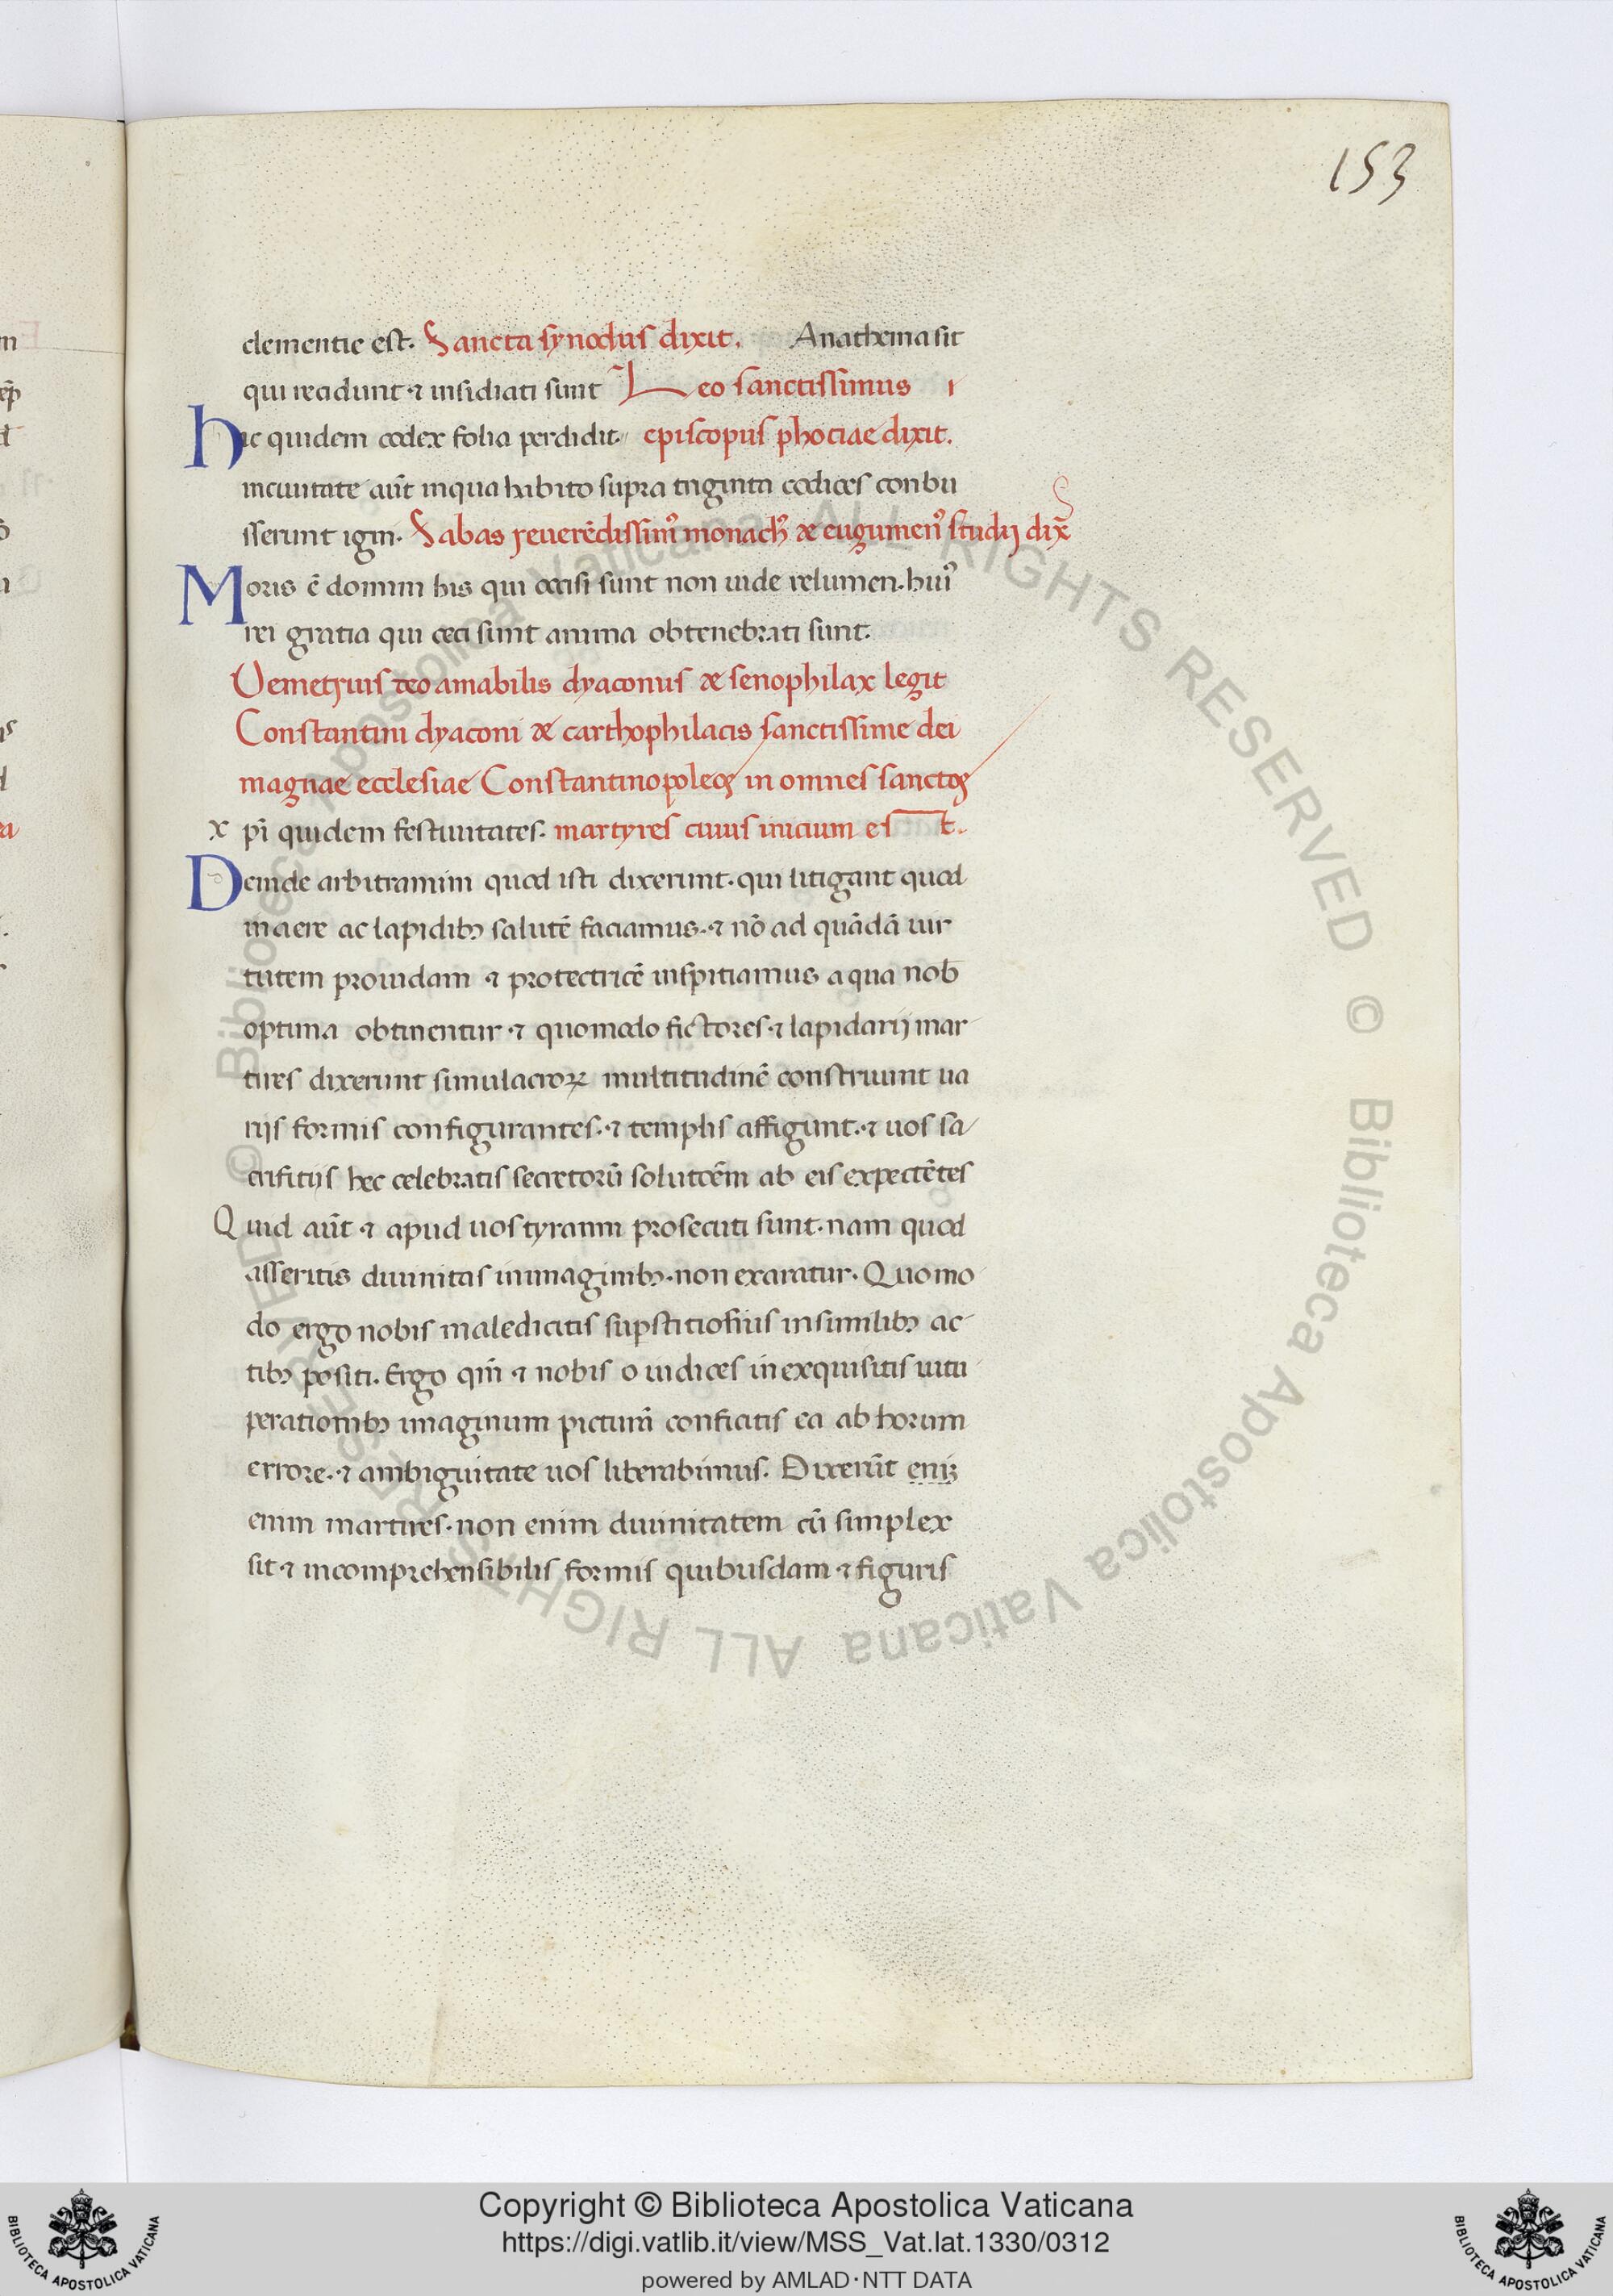 153
clementie est. Sancta synodus dixit. Anathema sit
qui recidunt ⁊ insidiati sunt Leo sanctissimus
hic quidem codex folia perdidit. episcopus phociae dixit.
inciuitate aūt inqua habito supra triginta codices conbu
sserunt igni. Sabas reuerēdissimꝰ monachꝰ ⁊ eugumenꝰ studij dix̄
Moris ē domini his qui occisi sunt non uide relumen. huiꝰ
rei gratia qui ceci sunt anima obtenebrati sunt.
Demetrius deo amabilis dyaconus ⁊ senophilax legit
Constantini dyaconi ⁊ carthophilacis sanctissime dei
magnae ecclesiae Constantinopoleos in omnes sanctos
xpi̅ quidem festiuitates. martyres cuius inicium est.
Deinde arbitramini quod isti dixerunt. qui litigant quod
in aere ac lapidibꝫ salutē faciamus. ⁊ nō ad quādā uir
tutem prouidam ⁊ protectricē inspitiamus a qua nob̄
optima obtinentur ⁊ quomodo fictores ⁊ lapidarij mar
tires dixerunt simulacroꝝ multitudinē construunt ua
rijs formis configurantes. ⁊ templis affigunt. ⁊ uos sa
crifitijs hec celebratis secretorū solutōem ab eis expectētes
Quid aūt ⁊ apud uos tyranni prosecuti sunt. nam quod
asseritis diuinitas inmaginibꝫ. non exaratur. Quomo
do ergo nobis maledicitis suꝑstitiosius insimilibꝫ ac
tibꝫ positi. Ergo qm̄ ⁊ nobis o iudices inexquisitis uitu
perationibꝫ imaginum picturā conficitis ea ab horum
errore. ⁊ ambiguitate uos liberabimus. Dixerūt eniꝫ
enim martires. non enim diuinitatem cū simplex
sit ⁊ incomprehensibilis formis quibusdam ⁊ figuris
© Biblioteca Apostolica Vaticana ALL RIGHTS RESERVED © Biblioteca Apostolica Vaticana ALL RIGHTS RESERVED
Copyright © Biblioteca Apostolica Vaticana
https://digi.vatlib.it/view/MSS_Vat.lat.1330/0312
powered by AMLAD · NTT DATA
BIBLIOTECA APOSTOLICA VATICANA
BIBLIOTECA APOSTOLICA VATICANA